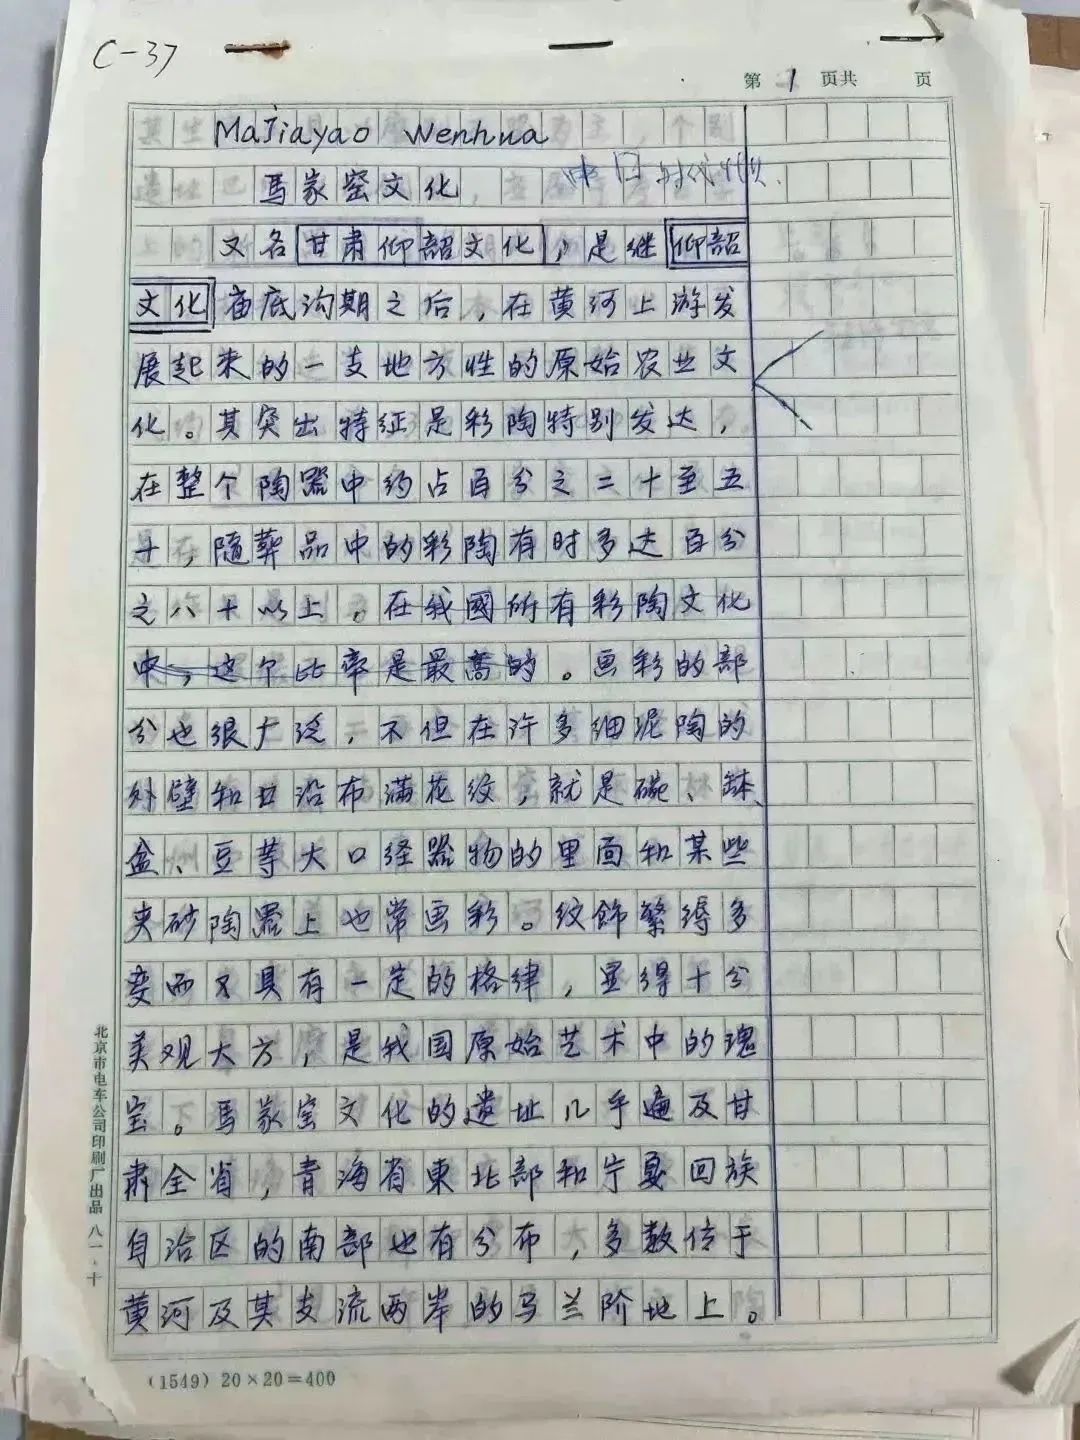 C-37
第 1 页共 页
MaJiayao Wenhua
馬家窑文化
又名甘肃仰韶文化，是继仰韶
文化庙底沟期之后，在黄河上游发
展起来的一支地方性的原始农业文
化。其突出特征是彩陶特别发达，
在整个陶器中约占百分之二十至五
十，随葬品中的彩陶有时多达百分
之八十以上。在我國所有彩陶文化
中，这个比率是最高的。画彩的部
分也很广泛，不但在许多细泥陶的
外壁和口沿布满花纹，就是碗、钵、
盆、豆等大口径器物的里面和某些
夹砂陶器上也常画彩。纹飾繁缛多
变而又具有一定的格律，显得十分
美观大方，是我国原始艺术中的瑰
宝。馬家窑文化的遗址几乎遍及甘
肃全省，青海省東北部和宁夏回族
自治区的南部也有分布，多数位于
黄河及其支流两岸的马兰阶地上。
北京市电车公司印刷厂出品 八一·十
(1549) 20×20=400